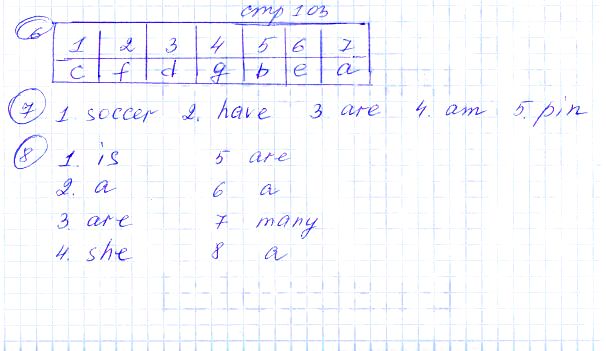 стр 103
6 1 2 3 4 5 6 7
c f d g b e a
7 1 soccer 2. have 3 are 4. am 5. pin
8 1. is 5 are
2. a 6 a
3. are 7 many
4. she 8 a